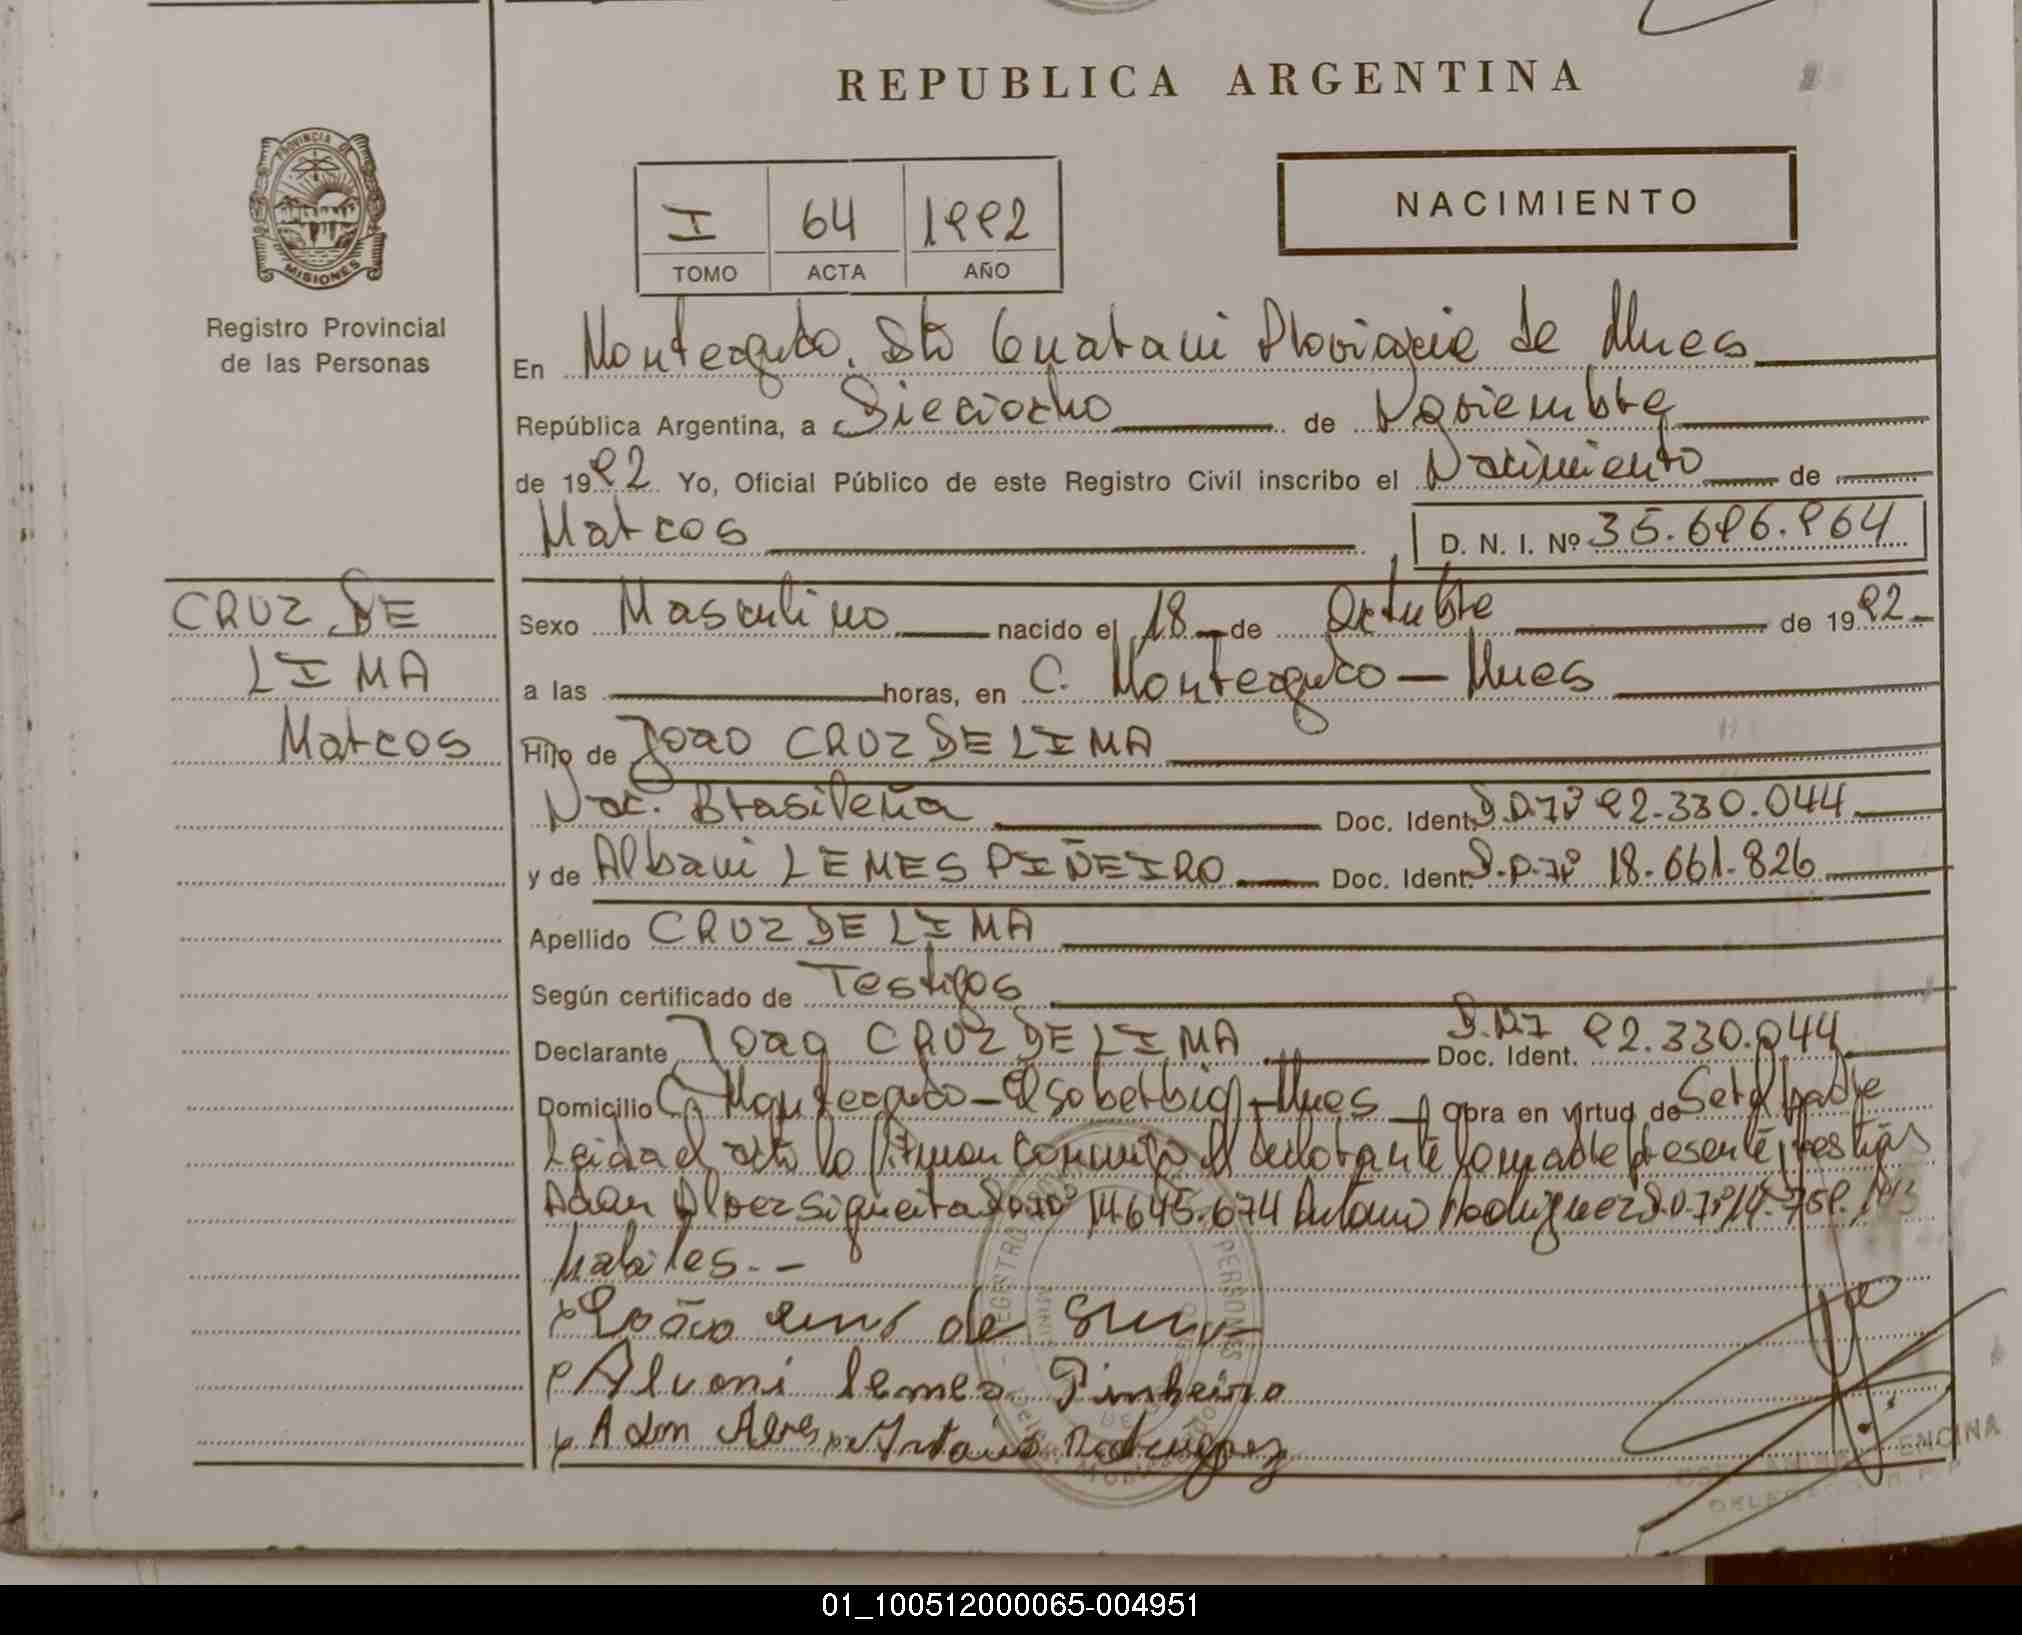 REPUBLICA ARGENTINA
PROVINCIA DE
MISIONES
Registro Provincial
de las Personas
I 64 1992
TOMO ACTA AÑO
NACIMIENTO
En Monteagudo. Dto Guarani Provincia de Mnes
República Argentina, a Dieciocho de Noviembre
de 1992 Yo, Oficial Público de este Registro Civil inscribo el Nacimiento de
Marcos D. N. I. Nº 35.696.964
CRUZ DE
LIMA
Marcos
Sexo Masculino nacido el 18 de Octubre de 1992
a las horas, en C. Monteagudo - Mnes
Hijo de Joao CRUZ DE LIMA
Nac. Brasileña Doc. Ident. D.N.Iº 92.330.044
y de Albani LEMES PIÑEIRO Doc. Ident. D.N.Iº 18.661.826
Apellido CRUZ DE LIMA
Según certificado de Testigos
Declarante Joao CRUZ DE LIMA Doc. Ident. D.N.I 92.330.044
Domicilio Cº Monteagudo - El Soberbio - Mnes Obra en virtud de Ser el padre
Leida el acta la firman conmigo el declarante la madre presente, testigos
Adan Alvez Siqueira D.N.Iº 14.645.674 Antonio Rodriguez D.N.Iº
habiles. -
x João
x Alvani lemes Pinheiro
x Adan Alves x Antonio Rodriguez
REGISTRO PERSONAS
ENCINA
01_100512000065-004951